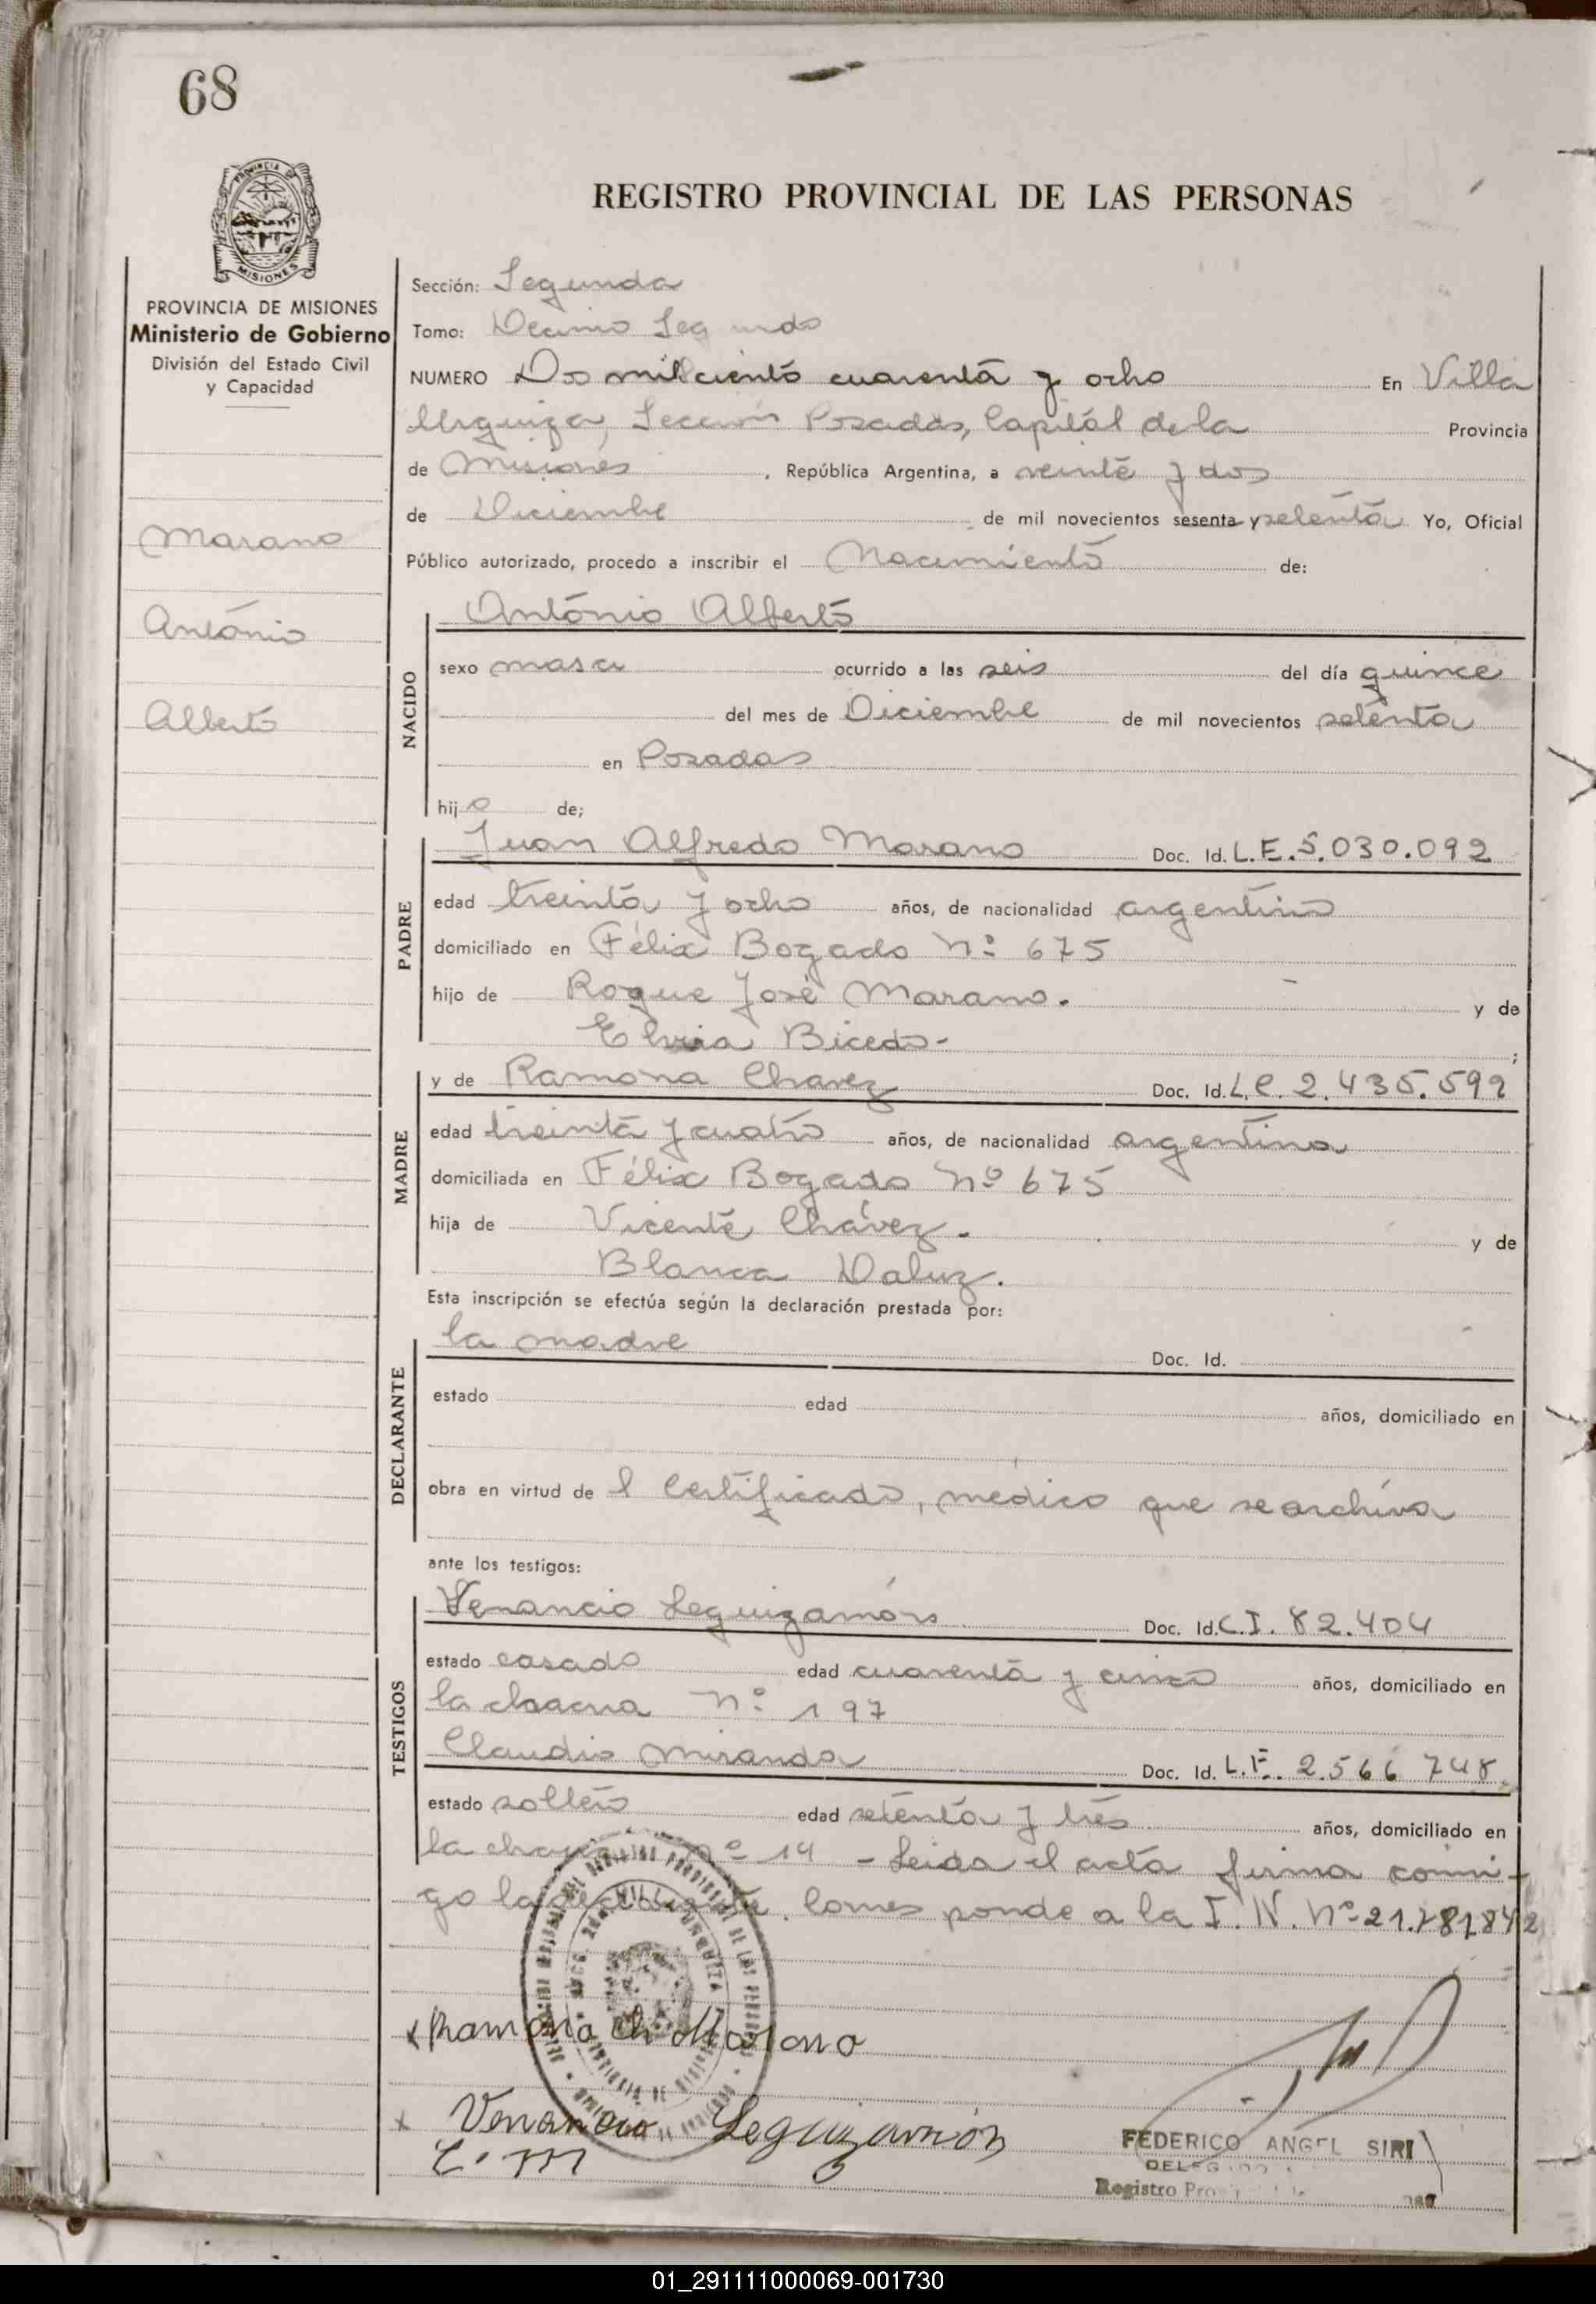 68
REGISTRO PROVINCIAL DE LAS PERSONAS
PROVINCIA DE MISIONES
Ministerio de Gobierno
División del Estado Civil
y Capacidad
Marano
Antonio
Alberto
Sección: Segunda
Tomo: Decimo Segundo
NUMERO Dos mil ciento cuarenta y ocho En Villa
Urquiza, Sección Posadas, Capital de la Provincia
de Misiones, República Argentina, a veinte y dos
de Diciembre de mil novecientos sesenta y setenta Yo, Oficial
Público autorizado, procedo a inscribir el Nacimiento de:
NACIDO
Antonio Alberto
sexo masc ocurrido a las seis del día quince
del mes de Diciembre de mil novecientos setenta
en Posadas
hijo de;
PADRE
Juan Alfredo Marano Doc. Id. L.E.5.030.092
edad treinta y ocho años, de nacionalidad argentino
domiciliado en Félix Bogado Nº 675
hijo de Roque José Marano. y de
Elvia Bicedo- ;
MADRE
y de Ramona Chavez Doc. Id. L.C. 2.435.592
edad treinta y cuatro años, de nacionalidad argentina
domiciliada en Félix Bogado Nº 675
hija de Vicente Chávez. y de
Blanca Daluz.
Esta inscripción se efectúa según la declaración prestada por:
DECLARANTE
la madre Doc. Id.
estado edad años, domiciliado en
obra en virtud de l Certificado, medico que se archiva
ante los testigos:
TESTIGOS
Venancio Leguizamón Doc. Id. C.I. 82.404
estado casado edad cuarenta y cinco años, domiciliado en
la chacra Nº 197
Claudio Miranda Doc. Id. L.E. 2.566 748
estado soltero edad setenta y tres años, domiciliado en
la chacra Nº 14 - Leida el acta firma conmi-
go la declarante. Corres ponde a la I. N. Nº 21.781842
x Ramona Ch Marano
x Venancio Leguizamón
C. M
FEDERICO ANGEL SIRI
Registro
01_291111000069-001730